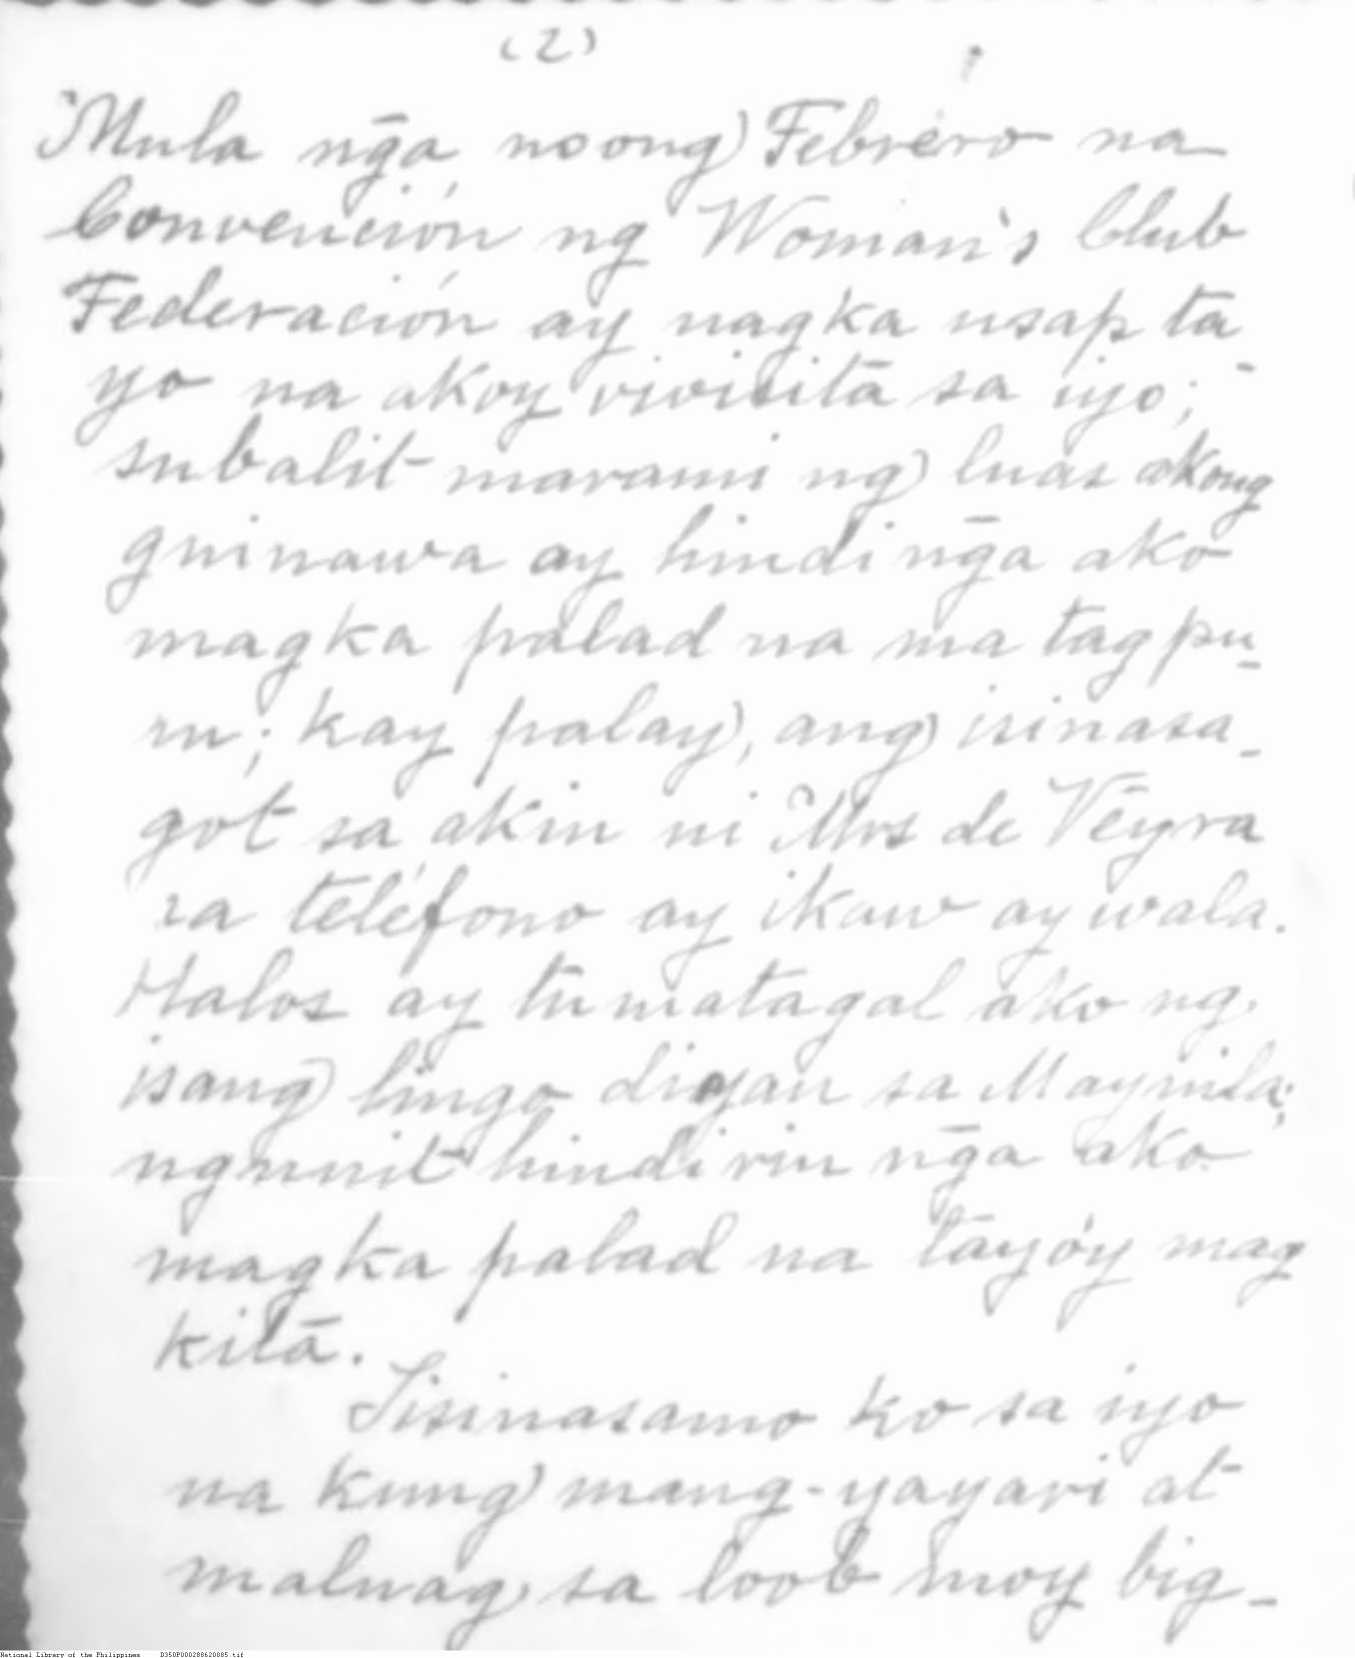 (2)
Mula nḡa noong Febrero na
Convención ng Woman's Club
Federación ay nagka usap ta
yo na akoy vivisita sa iyo;
subalit marami ng luas akong
guinawa ay hindi nḡa ako
magka palad na ma tagpu-
ru; kay palay, ang isinasa-
got sa akin ni Mrs de Veyra
sa teléfono ay ikaw ay wala.
Halos ay tumatagal ako ng
isang lingo diyan sa Maynila;
ngunit hindi rin nḡa ako
magka palad na tayóy mag
kita.
Sisinasamo ko sa iyo
na kung mang-yayari at
maluag sa loob moy big-
National Library of the Philippines D350P000288620885.tif